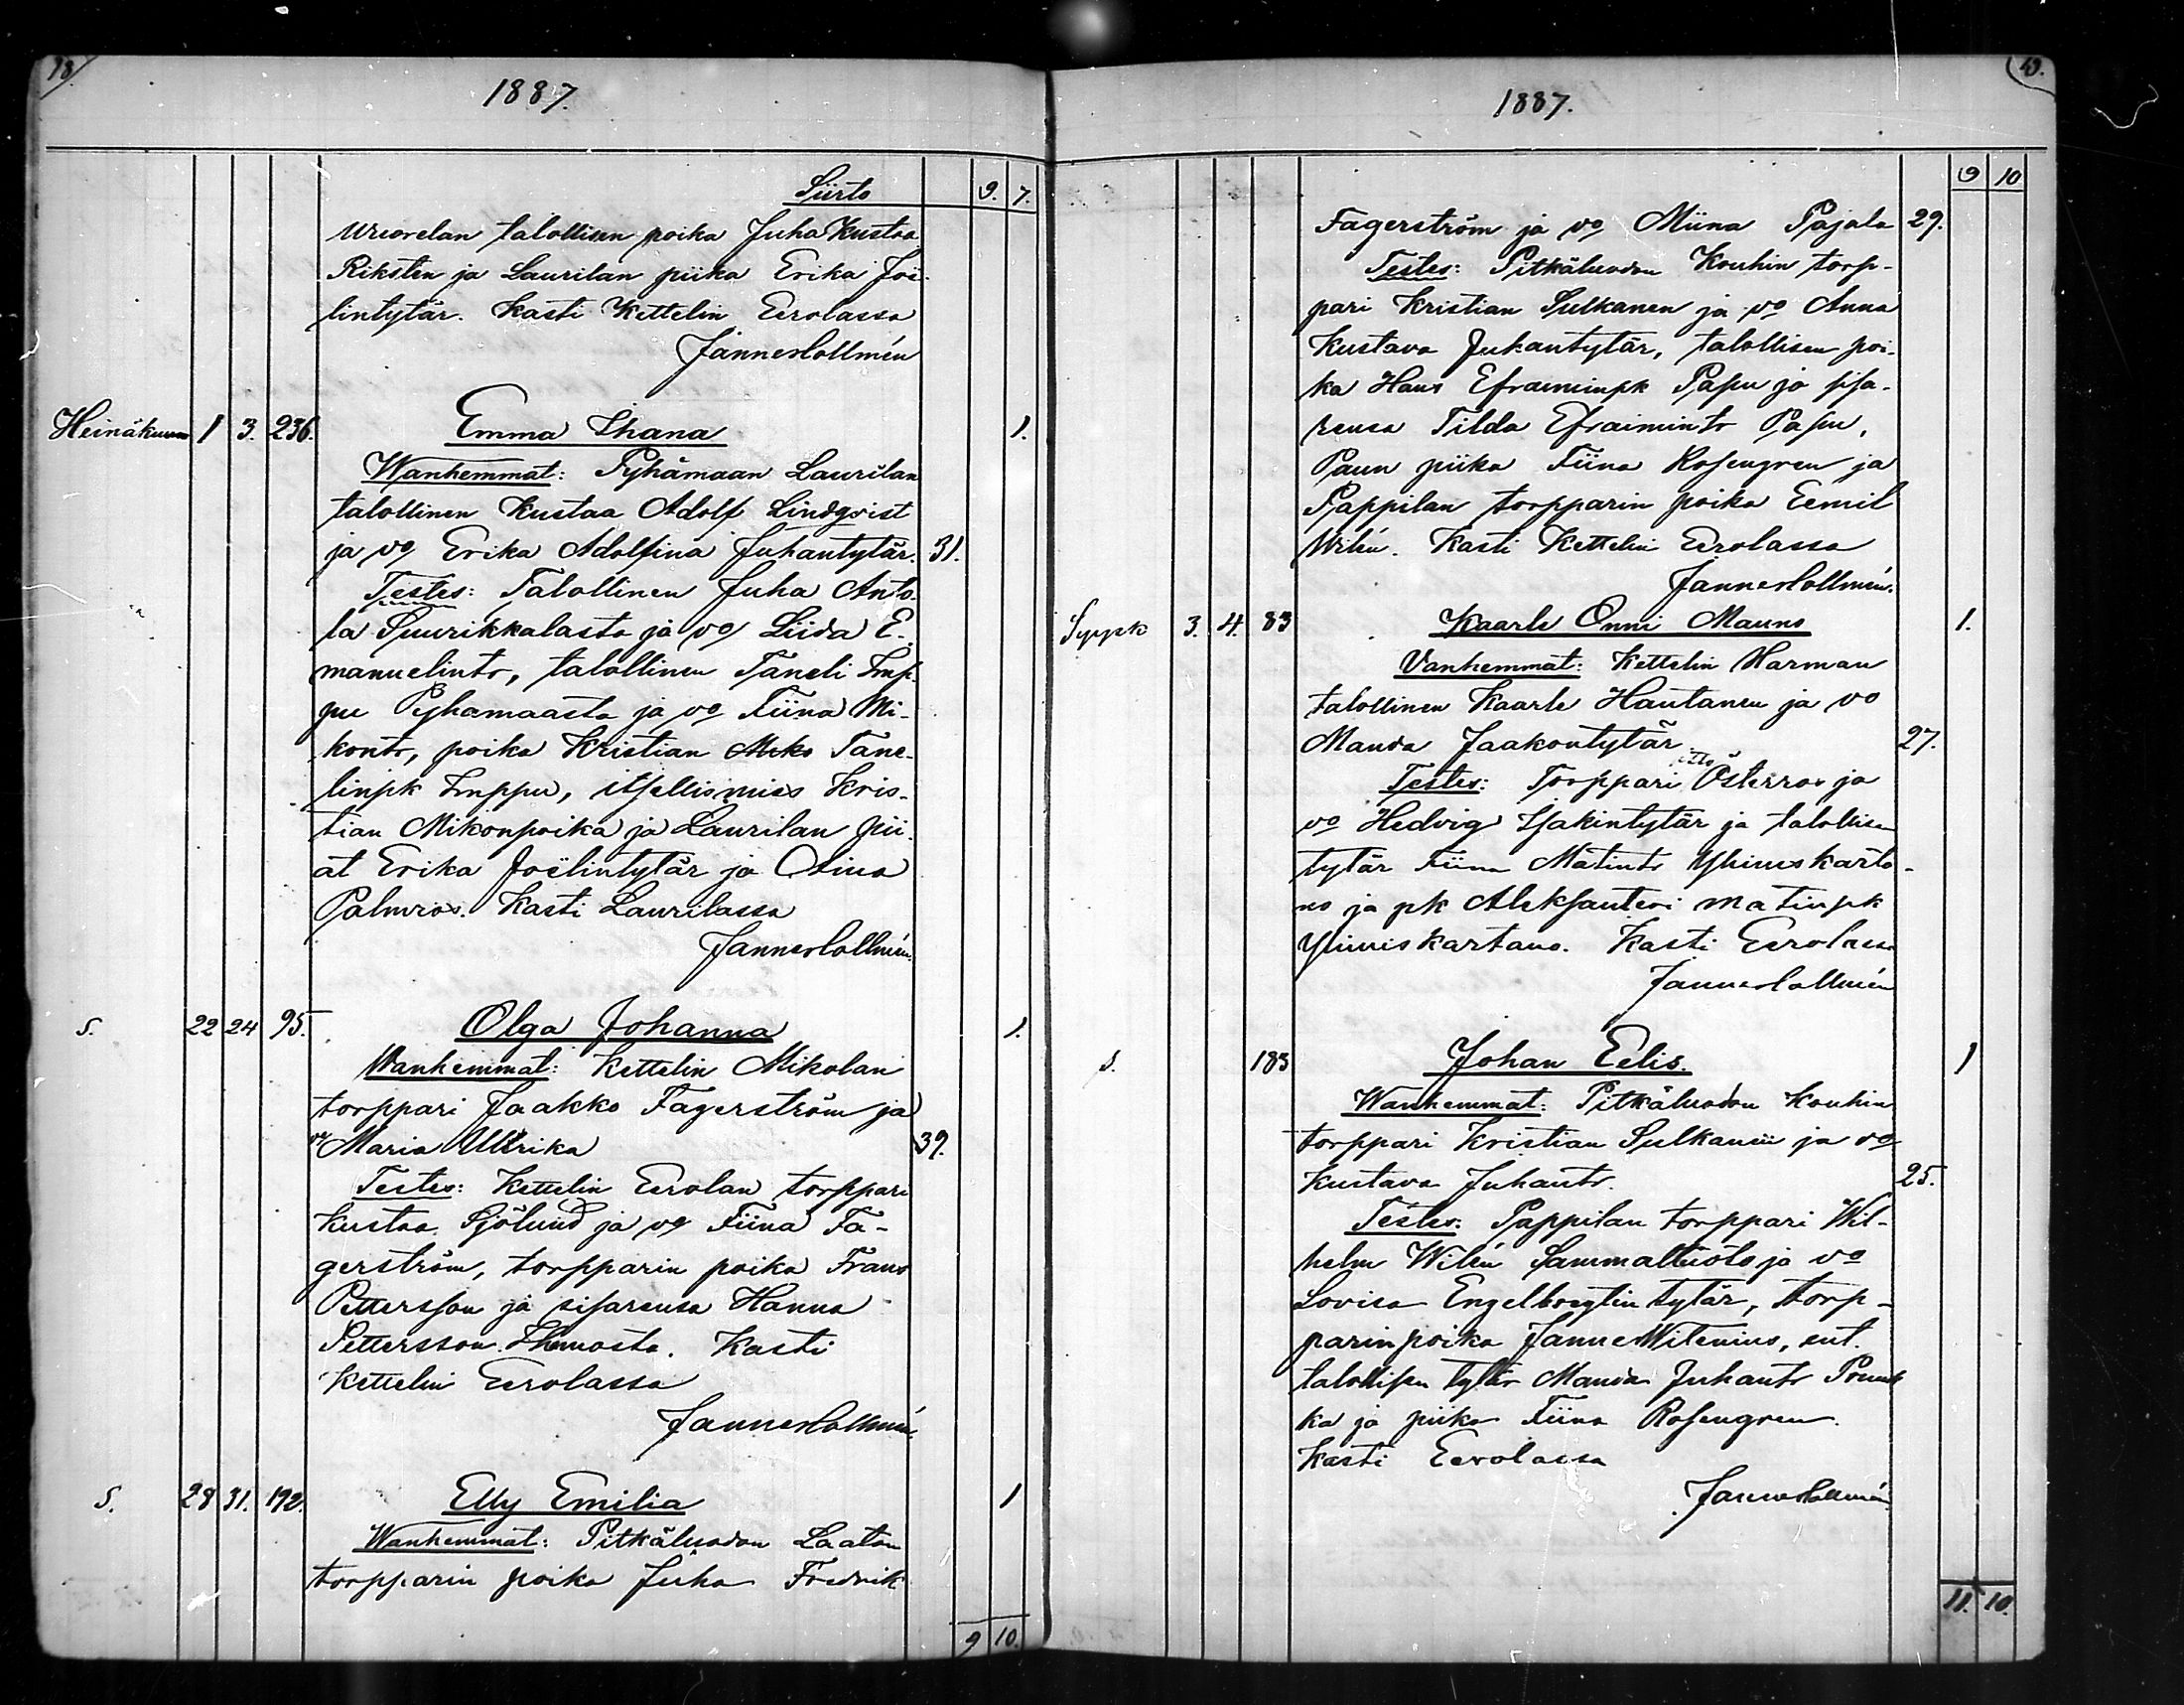 18
1887.
Siirto 9. 7.
talollisen poika Juha Kustaa
Riksten ja Laurilan piika Erika Joe-
lintytär. Kasti Kettelin Eerolassa
Janne Hollmén
Heinäkuun 1 3. 236. Emma Ihana 1.
Wanhemmat: Pyhämaan Laurilan
talollinen Kustaa Adolf Lindqvist
ja vo Erika Adolfina Juhantytär. 31.
Testes: Talollinen Juha Anto-
la Suurikkalasta ja vo Liida E-
manuelintr, talollinen Taneli Imp-
pu Pyhamaasta ja vo Fiina Mi-
kontr, poika Kristian Tane-
linpk Imppu, itsellismies Kris-
tian Mikonpoika ja Laurilan pii-
at Erika Joelintytär ja Aina
Palmros. Kasti Laurilassa
Janne Hollmén.
S. 22 24 95. Olga Johanna 1.
Wanhemmat: Kettelin Mikolan
torppari Jaakko Fagerström ja
vo Maria Ulrika 39.
Testes: Kettelin Eerolan torppari
Kustaa Sjölund ja vo Fiina Fa-
gerström, torpparin poika Frans
Pettersson ja sisarensa Hanna
Pettersson. Kasti
Kettelin Eerolassa
Janne Hollmén.
S. 28 31. 192. Elly Emilia 1
Wanhemmat: Pitkäluodon Laaton
torpparin poika Juha Fredrik
9 10.
19.
1887.
9 10
Fagerström ja vo Miina Pajala 29.
Testes: Pitkäluodon Kouhin torp-
pari Kristian Sulkanen ja vo Anna
Kustava Juhantytär, talollisen poi-
ka Hans Efraiminpk Papu ja sisa-
rensa Tilda Efraimintr Papu,
Paun piika Fiina Rosengren ja
Pappilan torpparin poika Eemil
Wilén. Kasti Kettelin Eerolassa
Janne Hollmén.
Syysk 3. 4. 83 Kaarle Onni Mauno 1.
Vanhemmat: Kettelin Harman
talollinen Kaarle Hautanen ja vo
Manda Jaakontytär 27.
Testes: Torppari Otto Österros ja
vo Hedvig Isakintytär ja talollisen
tytär Fiina Matintr Yliniskarta-
no ja pk Aleksanteri Matinpk
Yliniskartano. Kasti Eerolassa
Janne Hollmén
S. 183 Johan Eelis. 1
Wanhemmat: Pitkäluodon Kouhin
torppari Kristian Sulkanen ja vo
Kustava Juhantr. 25.
Testes: Pappilan torppari Wil-
helm Wilén ja vo
Lovisa Engelbregtin tytär, torp-
parin poika Janne Witenius, ent.
talollisen tytär Manda Juhantr
ka ja piika Fiina Rosengren.
Kasti Eerolassa
Janne Hollmén
11. 10.